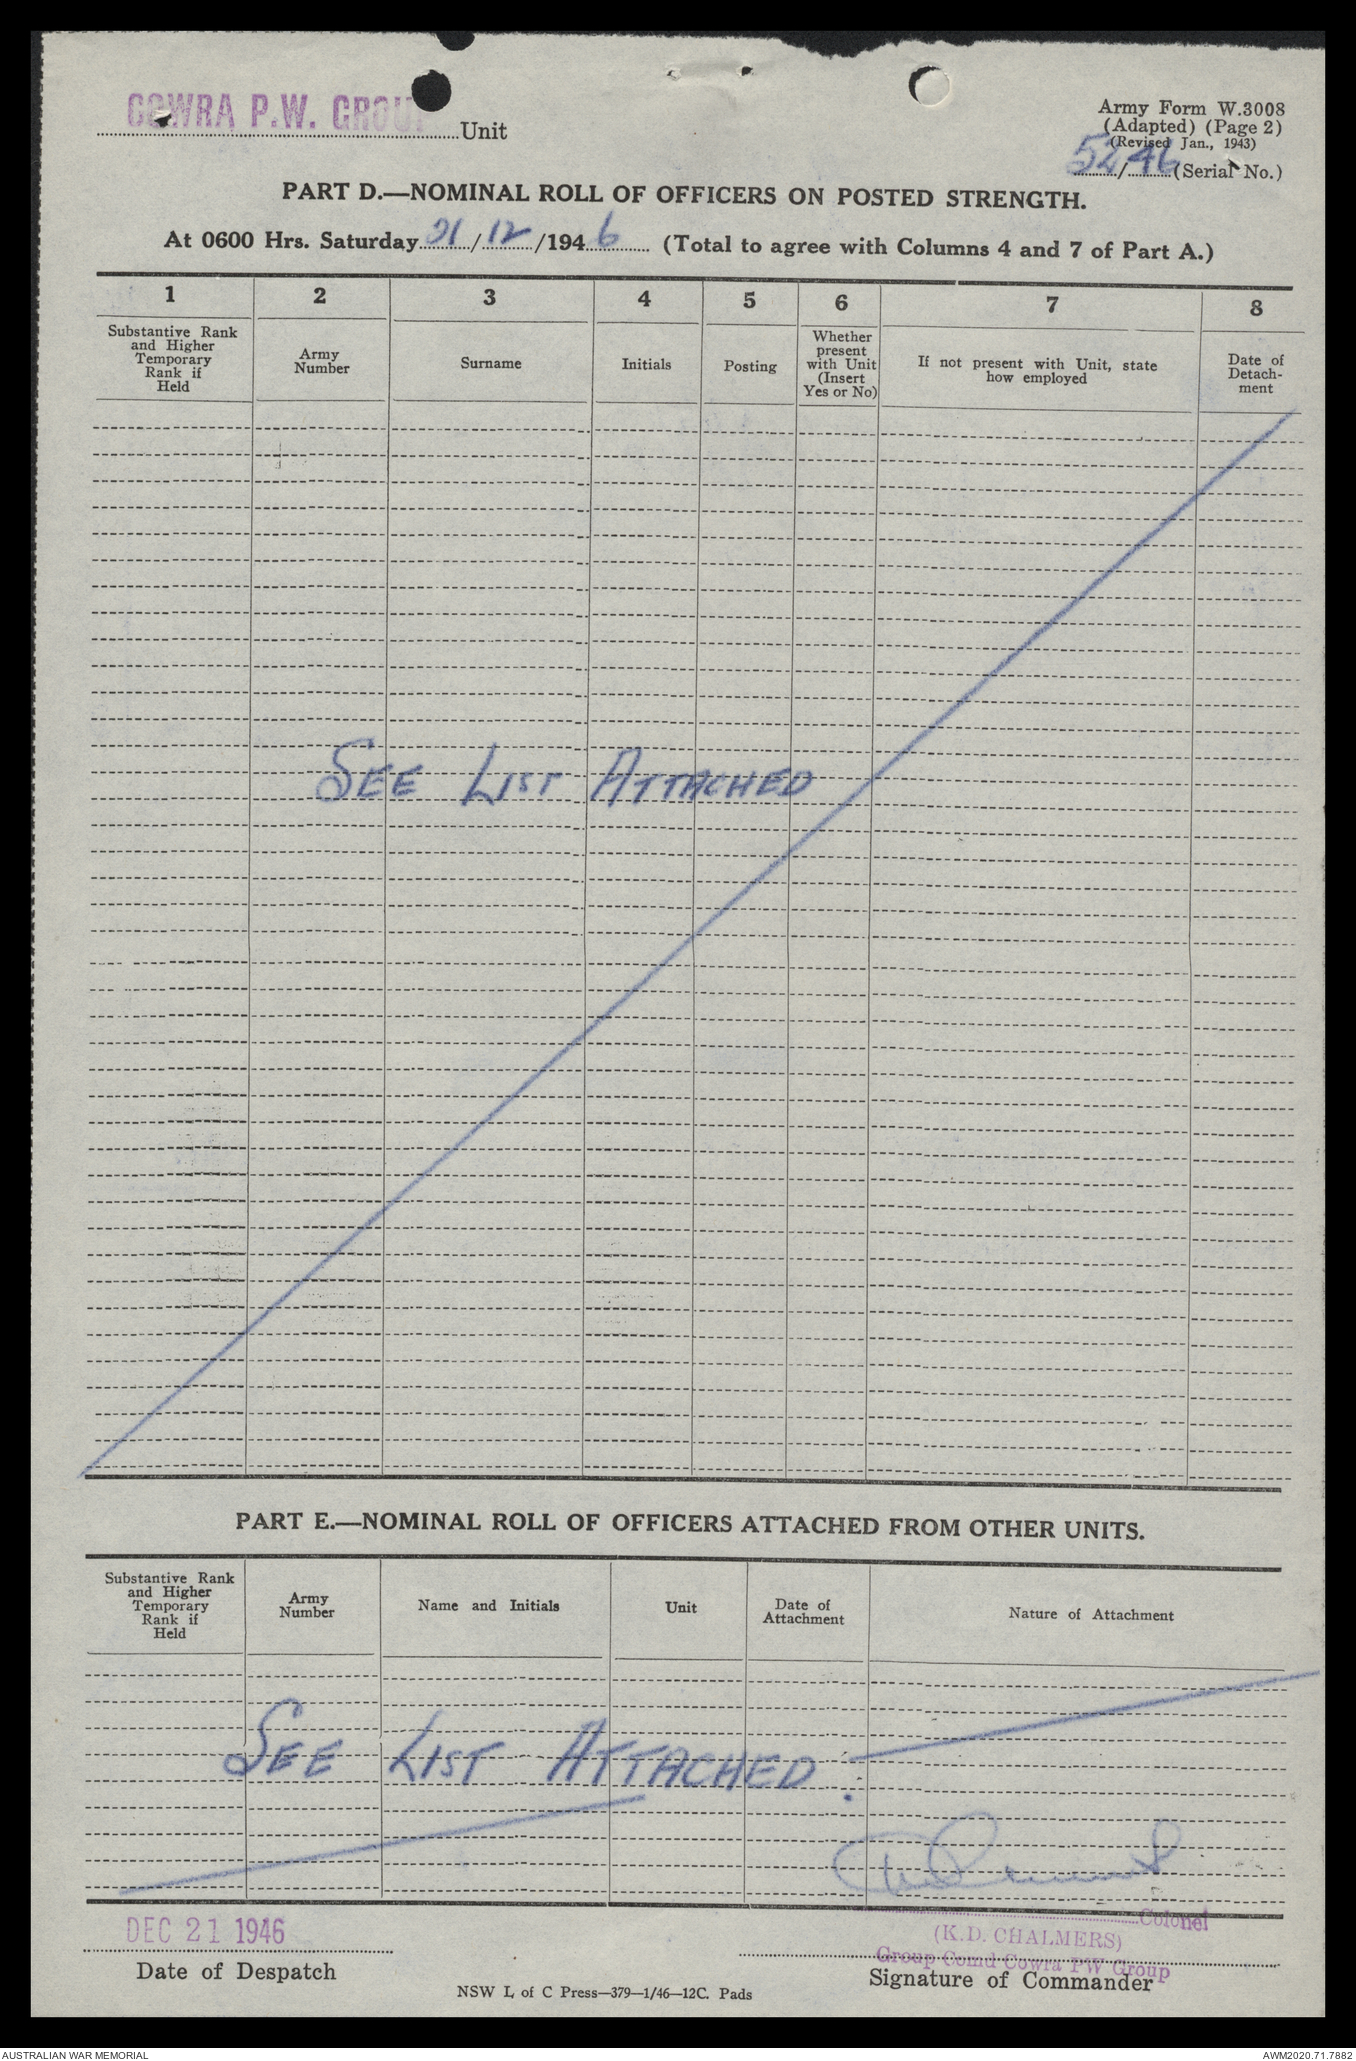 COWRA P.W. GROUP Unit
Army Form W.3008
(Adapted) (Page 2)
(Revised Jan., 1943)
52/46 (Serial No.)
PART D.—NOMINAL ROLL OF OFFICERS ON POSTED STRENGTH.
At 0600 Hrs. Saturday 21/12/1946 (Total to agree with Columns 4 and 7 of Part A.)
1 2 3 4 5 6 7 8
Substantive Rank
and Higher
Temporary
Rank if
Held
Army
Number
Surname
Initials
Posting
Whether
present
with Unit
(Insert
Yes or No)
If not present with Unit, state
how employed
Date of
Detach-
ment
SEE LIST ATTACHED
PART E.—NOMINAL ROLL OF OFFICERS ATTACHED FROM OTHER UNITS.
Substantive Rank
and Higher
Temporary
Rank if
Held
Army
Number
Name and Initials
Unit
Date of
Attachment
Nature of Attachment
SEE LIST ATTACHED.
DEC 21 1946
Date of Despatch
Colonel
(K.D. CHALMERS)
Group Comd Cowra PW Group
Signature of Commander
NSW L of C Press—379—1/46—12C. Pads
AUSTRALIAN WAR MEMORIAL
AWM2020.71.7882